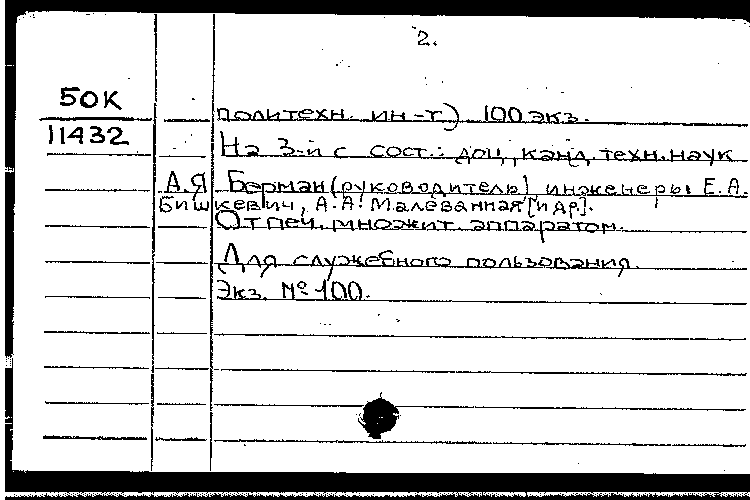 2.
50К
11432
политехн. ин-т) 100 экз.
На 3-й с сост.: доц., канд. техн. наук
А.Я Берман (руководитель) инженеры Е.А.
Бишкевич, А.А. Малеванная [и др].
Отпеч. множит. аппаратом.
Для служебного пользования.
Экз. № 100.